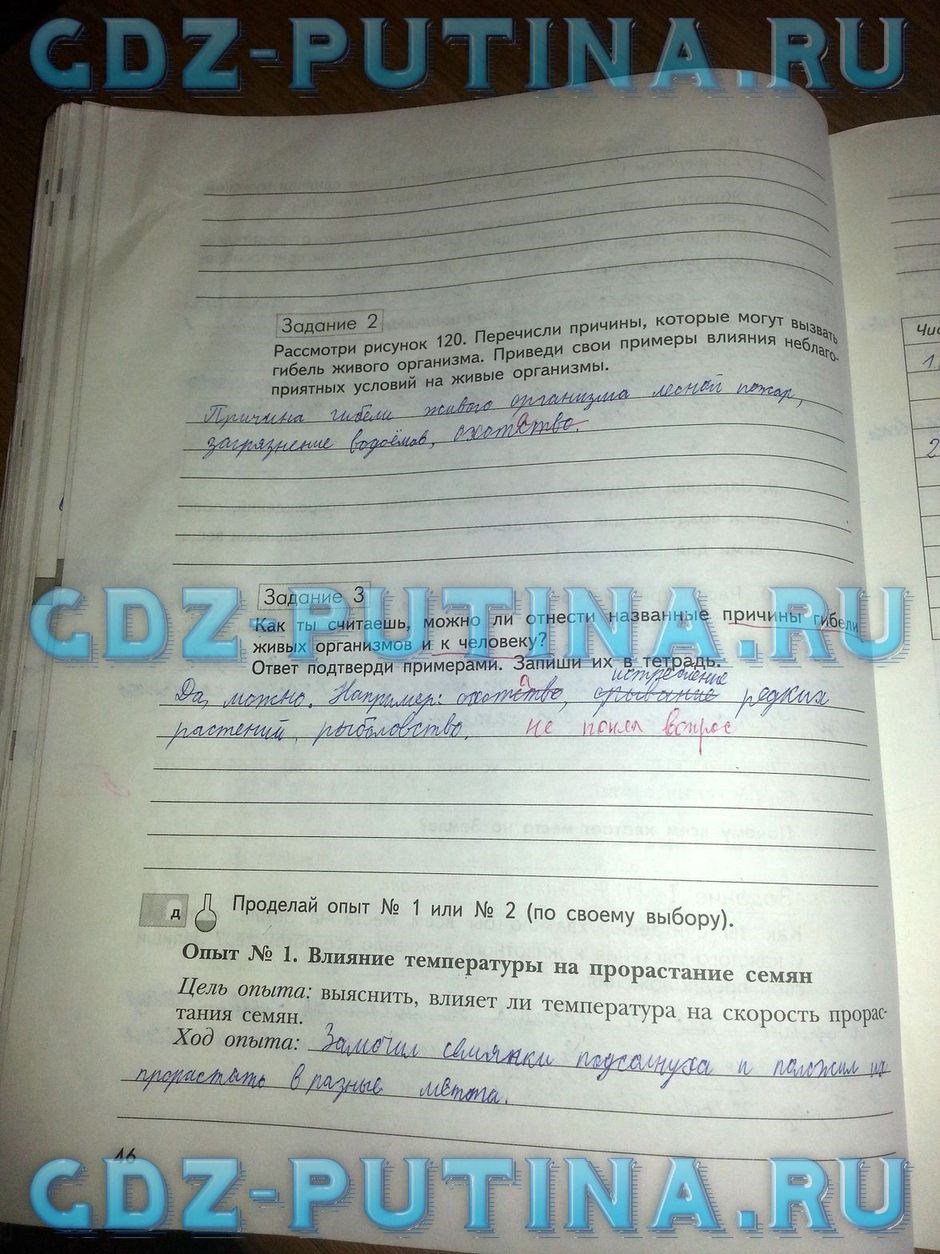 GDZ-PUTINA.RU
Задание 2
Рассмотри рисунок 120. Перечисли причины, которые могут вызвать
гибель живого организма. Приведи свои примеры влияния неблаго-
приятных условий на живые организмы.
Причина гибели живого организма лесной пожар,
загрязнение водоёмов, охотство.
а
GDZ-PUTINA.RU
Задание 3
Как ты считаешь, можно ли отнести названные причины гибели
живых организмов и к человеку?
Ответ подтверди примерами. Запиши их в тетрадь.
а истребление
Да, можно. Например: охотство, срывание редких
растений, рыболовство. не понял вопрос
Почему всем хватает места на Земле?
д Проделай опыт № 1 или № 2 (по своему выбору).
Опыт № 1. Влияние температуры на прорастание семян
Цель опыта: выяснить, влияет ли температура на скорость прорас-
тания семян.
Ход опыта: Замочил семянки подсолнуха и положил их
прорастать в разные места.
46
GDZ-PUTINA.RU
Чис
1.
2